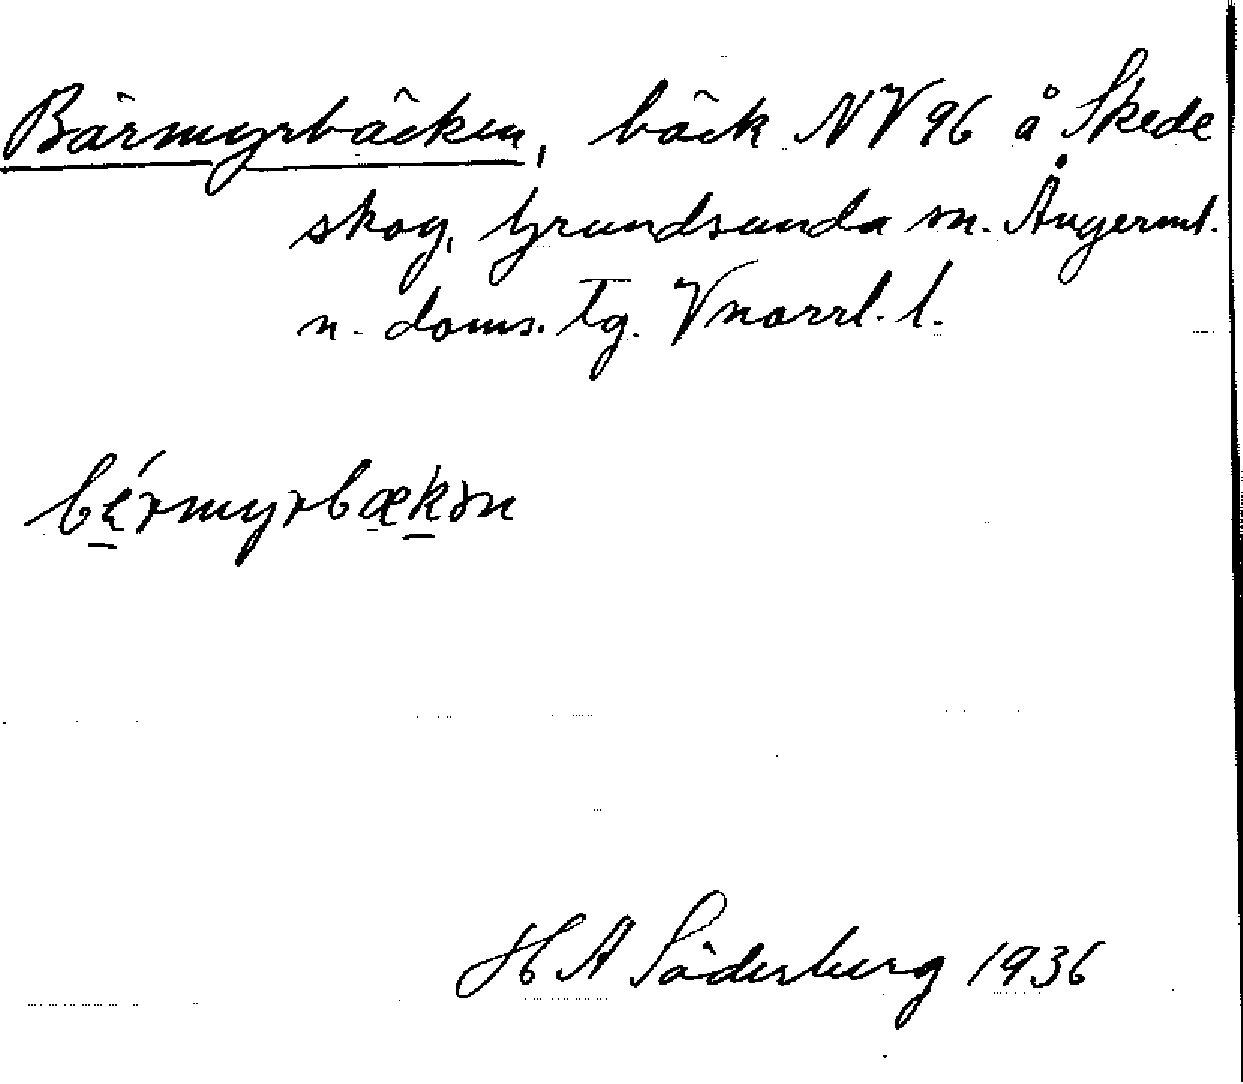 Bärmyrbäcken, bäck NV 96 å Skede
skog, Grundsunda sn. Ångerml.
n. doms. tg. Vnorrl. l.
bérmyrbækən
H A Söderberg 1936